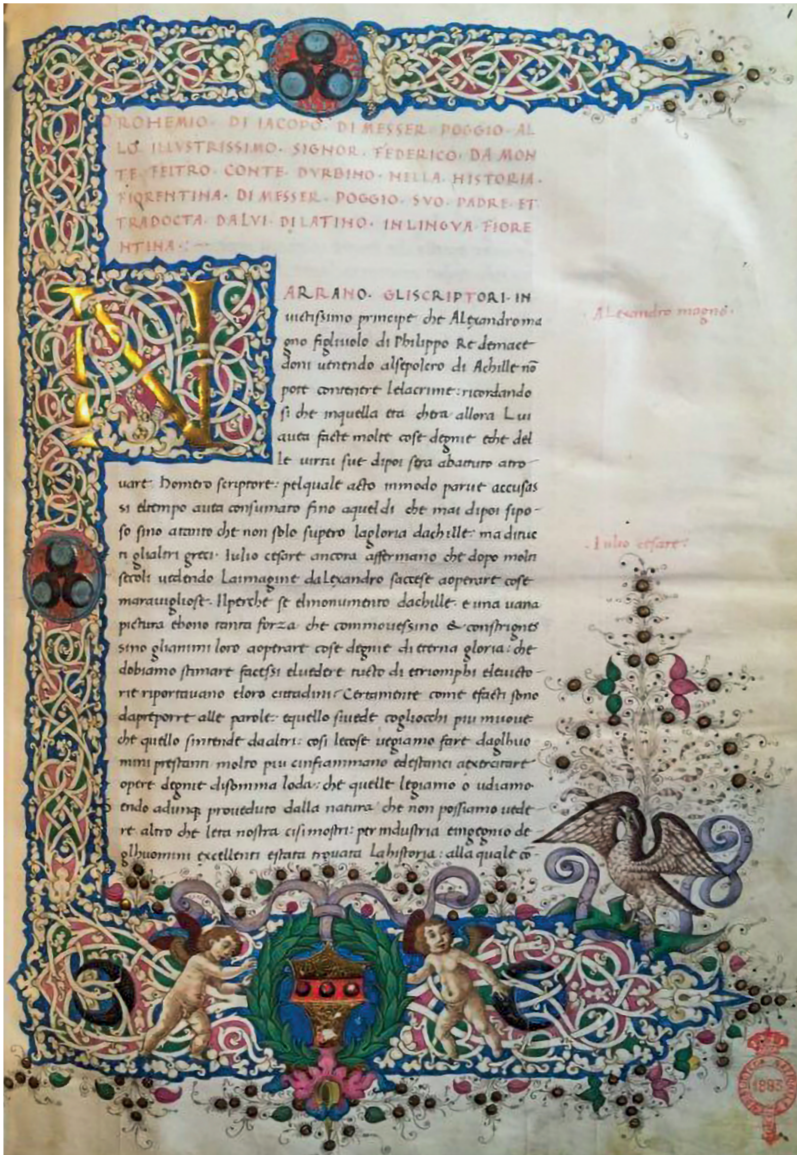 1
PROHEMIO · DI IACOPO · DI MESSER · POGGIO · AL
LO · ILLVSTRISSIMO · SIGNOR · FEDERICO · DA MON
TE · FELTRO · CONTE · DVRBINO · NELLA · HISTORIA ·
FIORENTINA · DI MESSER · POGGIO · SVO · PADRE · ET
TRADOCTA · DALVI · DI LATINO · IN LINGVA · FIORE
NTINA : ~
NARRANO · GLISCRIPTORI · IN
uictissimo principe che Alexandro ma
gno figliuolo di Philippo Re demace
doni uenendo alsepolcro di Achille nō
pote contenere lelacrime: ricordando
si che inquella eta chera allora Lui
aueua facte molte cose degnie et che del
le uirtu sue dipoi sera abattuto atro
uare Homero scriptore: pelquale acto inmodo parue accusas
si eltempo aueua consumato fino aquel di che mai dipoi sipo
so sino atanto che non solo supero lagloria dachille: ma di tuc
ti glialtri greci. Iulio cesare ancora affermano che dopo molti
secoli uedendo Laimagine dalexandro saccese aoperare cose
marauigliose. Ilperche se elmonumento dachille e una uana
pictura ebono tanta forza che commouessino & constrignes
sino glianimi loro aoperare cose degnie di eterna gloria: che
dobiamo stimare facessi eluedere tucto di etriomphi eleuicto
rie riportauano eloro cittadini. Certamente come efacti sono
dapreporre alle parole: equello siuede cogliocchi piu muoue
che quello sintende daaltri: cosi lecose uegiamo fare daglhuo
mini prestanti molto piu cinfiammano edestanci aexercitare
opere degnie disomma loda: che quelle legiamo o udiamo
endo adunq proueduto dalla natura che non possiamo uede
re altro che leta nostra cisimostri: per industria eingegnio de
glhuomini excellenti estata trouata Lahistoria: alla quale cō
· Alexandro magno ·
· Iulio cesare :
1893